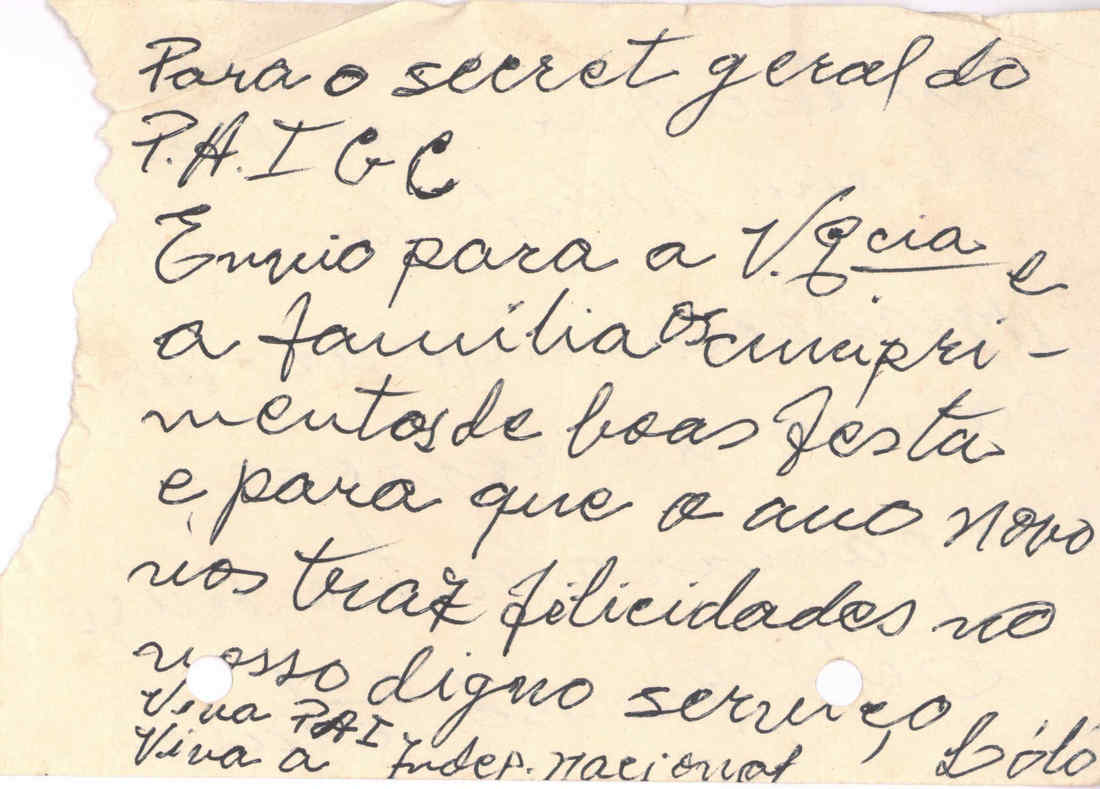 Para o secret geral do
P.A.I G C
Envio para a V. Excia e
a família os cumpri-
mentos de boas festa
e para que o ano novo
nos traz felicidades no
nosso digno serviço
Viva PAI
Viva a Indep. nacional, Lóló